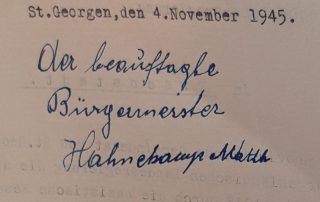 St.Georgen,den 4.November 1945.
der beauftagte
Bürgermeister
Hahnekamp Matth